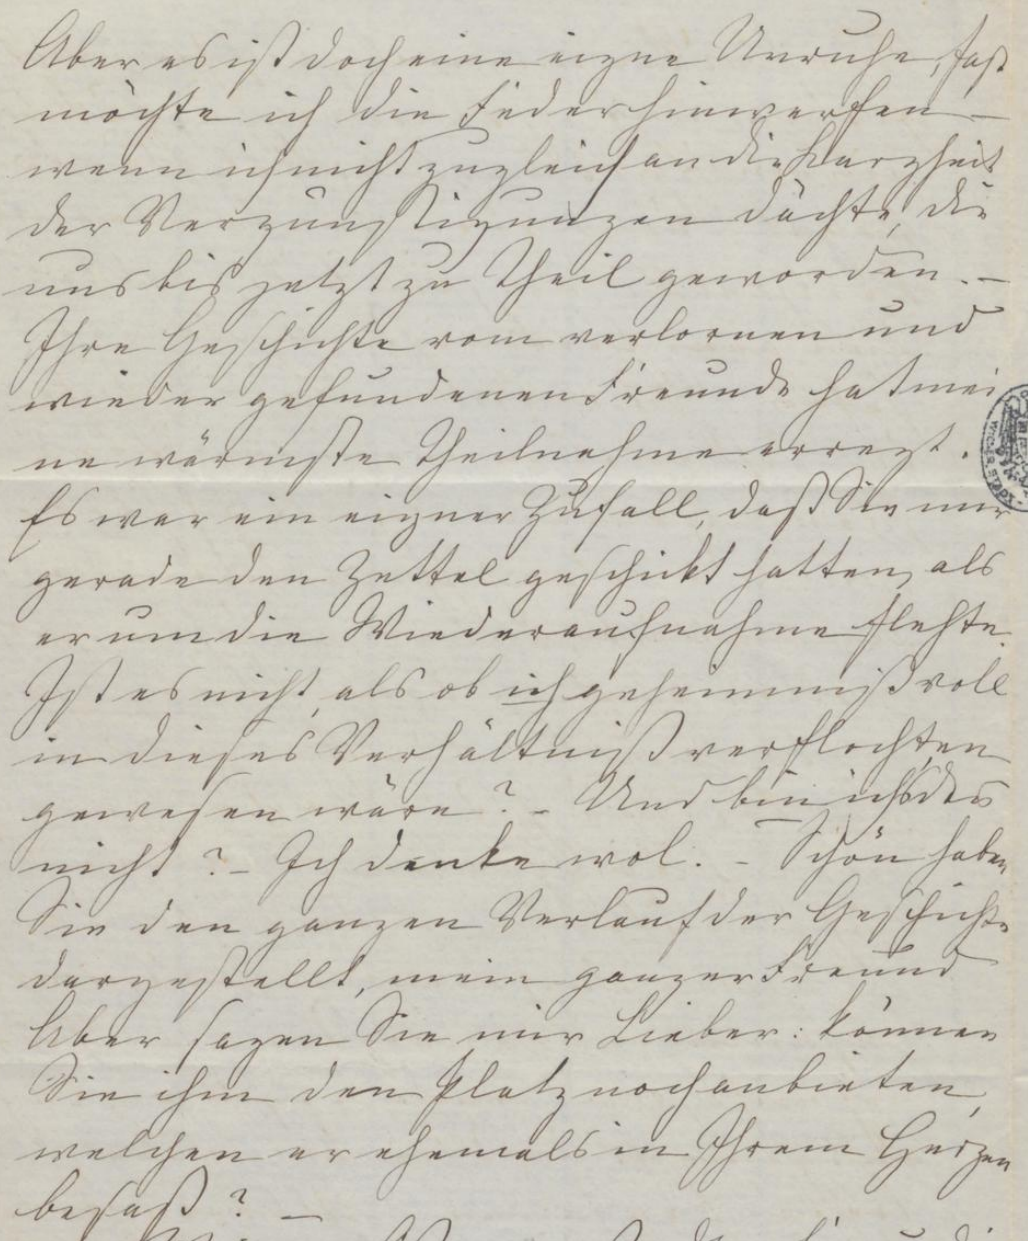 Aber es ist doch eine eigne Unruhe, fast
möchte ich die Feder hinwerfen –
wenn ich nicht zugleich an die Kargheit
der Vergünstigungen dächte, die
uns bis jetzt zu Theil geworden. –
Ihre Geschichte vom verlornen und
wieder gefundenen Freunde hat mei
ne wärmste Theilnahme erregt.
Es war ein eigner Zufall, daß Sie mir
gerade den Zettel geschickt hatten, als
er um die Wiederaufnahme flehte.
Ist es nicht, als ob ich geheimnißvoll
in dieses Verhältniß verflochten
gewesen wäre? – Und bin ichs
nicht? – Ich denke wol. – Schön haben
Sie den ganzen Verlauf der Geschichte
dargestellt, mein ganzer Freund
Aber sagen Sie mir Lieber: können
Sie ihm den Platz noch anbieten,
welchen er ehemals in Ihrem Herzen
besaß? –